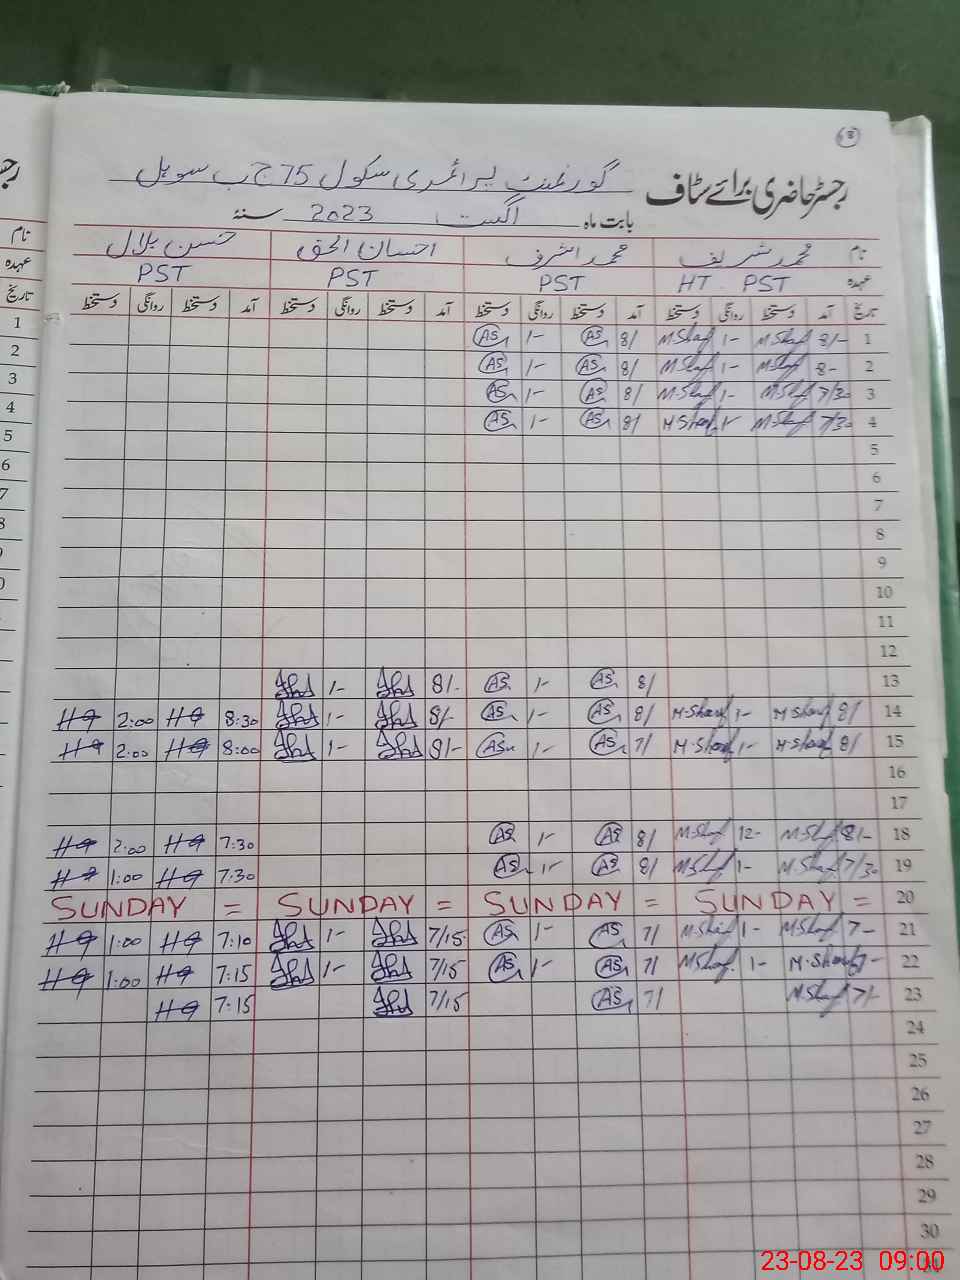 8
رجسٹر حاضری برائے سٹاف گورنمنٹ پرائمری سکول 75 ج ب سوہل
بابت ماہ اگست 2023 سنۂ
نام محمد شریف محمد اشرف احسان الحق حسن بلال
عہدہ HT PST PST PST PST
تاریخ آمد دستخط روانگی دستخط آمد دستخط روانگی دستخط آمد دستخط روانگی دستخط آمد دستخط روانگی دستخط
1 8/- M.Sharf 1- M.Sharf 8/ AS 1- AS
2 8- M.Sharf 1- M.Sharf 8/ AS 1- AS
3 7/30 M.Sharf 1- M.Sharf 8/ AS 1- AS
4 7/30 M.Sharf 1- M.Sharf 8/ AS 1- AS
5
6
7
8
9
10
11
12
13 8/ AS 1- AS 8/- 1-
14 8/ M.Sharf 1- M.Sharf 8/ AS 1- AS 8/- 1- 8:30 HQ 2:00 HQ
15 8/ M.Sharf 1- M.Sharf 7/ AS 1- AS 8/- 1- 8:00 HQ 2:00 HQ
16
17
18 8/- M.Sharf 12- M.Sharf 8/ AS 1- AS 7:30 HQ 2:00 HQ
19 7/30 M.Sharf 1- M.Sharf 8/ AS 1- AS 7:30 HQ 1:00 HQ
20 SUNDAY = SUNDAY = SUNDAY = SUNDAY =
21 7- M.Sharf 1- M.Sharf 7/ AS 1- AS 7/15 1- 7:10 HQ 1:00 HQ
22 7- M.Sharf 1- M.Sharf 7/ AS 1- AS 7/15 1- 7:15 HQ 1:00 HQ
23 7/- M.Sharf 7/ AS 7/15 7:15 HQ
24
25
26
27
28
29
30
31
نام
عہدہ
تاریخ
1
2
3
4
5
6
7
8
23-08-23 09:00